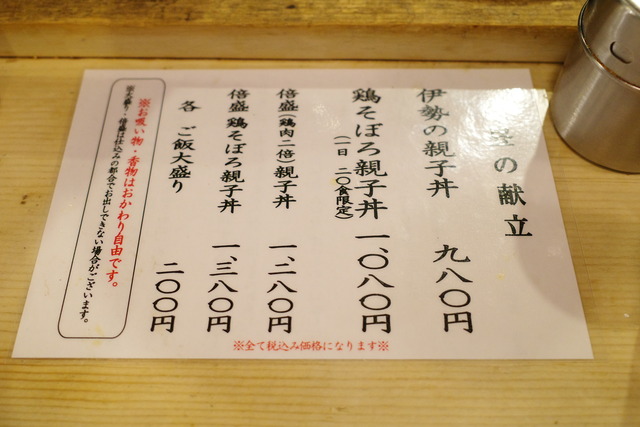 の献立
伊勢の親子丼 九八〇円
鶏そぼろ親子丼 一、〇八〇円
(一日 二〇食限定)
倍盛(鶏肉二倍)親子丼 一、二八〇円
倍盛 鶏そぼろ親子丼 一、三八〇円
各 ご飯大盛り 二〇〇円
※お吸い物・香物はおかわり自由です。
※大盛り・倍盛は仕込みの都合でお出しできない場合がございます。
※全て税込み価格になります※